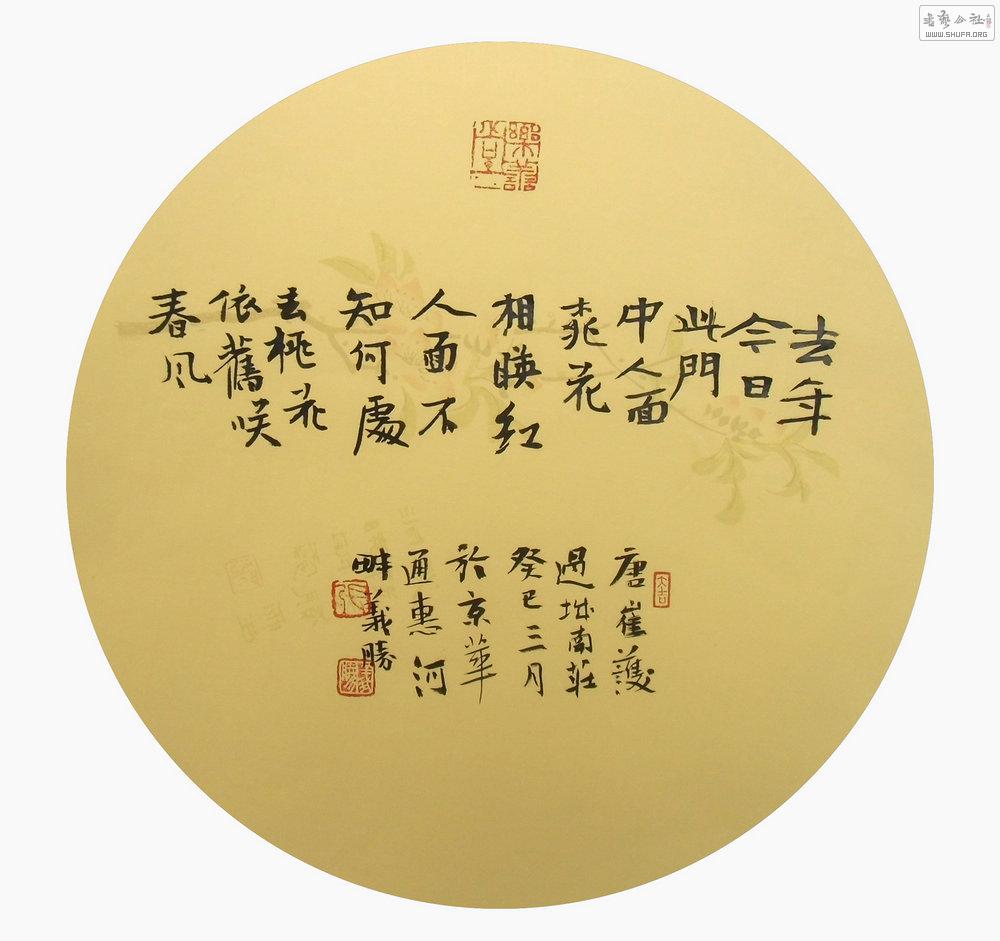 樂譱堂
去年
今日
此門
中人面
桃花
相暎紅
人面不
知何處
去桃花
依舊咲
春风
大吉
唐崔護
過城南莊
癸巳三月
於京華
通惠河
畔義勝
張
WWW.SHUFA.ORG